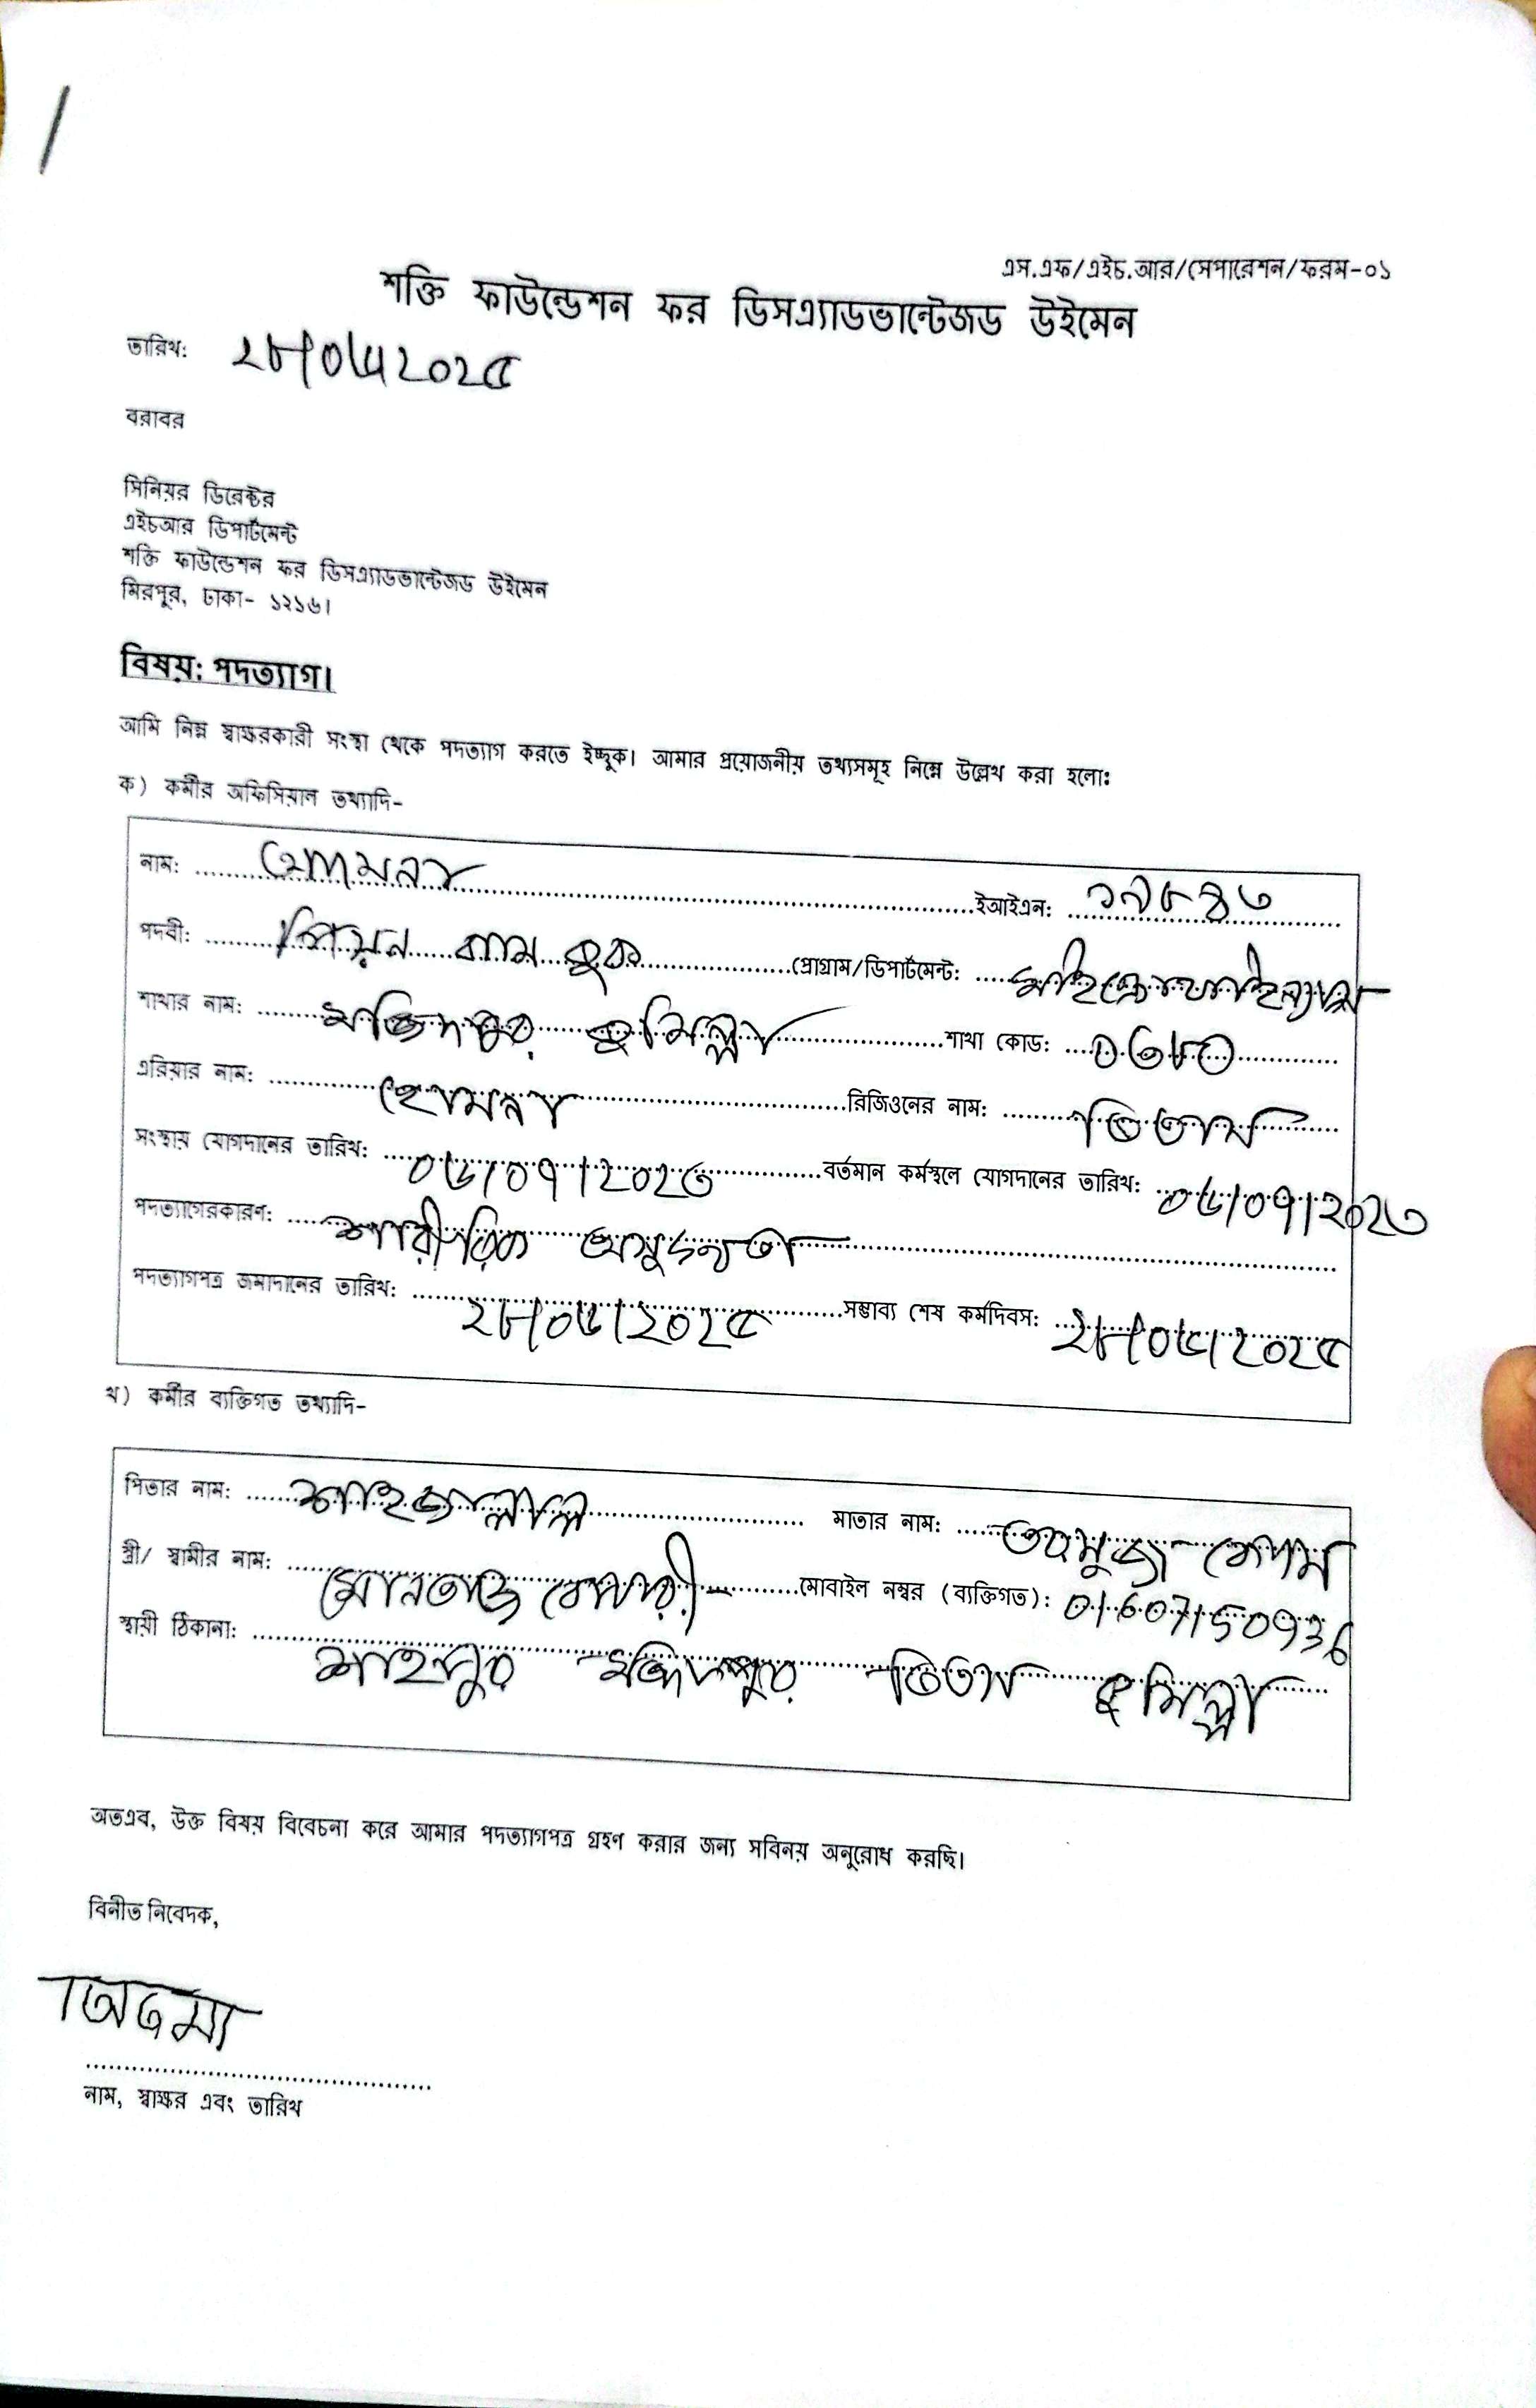 এস.এফ/এইচ.আর/সেপারেশন/ফরম-০১
শক্তি ফাউন্ডেশন ফর ডিসএ্যাডভান্টেজড উইমেন
তারিখ: ২৮/০৬/২০২৫
বরাবর
সিনিয়র ডিরেক্টর
এইচআর ডিপার্টমেন্ট
শক্তি ফাউন্ডেশন ফর ডিসএ্যাডভান্টেজড উইমেন
মিরপুর, ঢাকা- ১২১৬।
বিষয়: পদত্যাগ।
আমি নিম্ন স্বাক্ষরকারী সংস্থা থেকে পদত্যাগ করতে ইচ্ছুক। আমার প্রয়োজনীয় তথ্যসমূহ নিম্নে উল্লেখ করা হলো:
ক) কর্মীর অফিসিয়াল তথ্যাদি-
নাম: ইআইএন: ১৭৮৪৩
পদবী: পিয়ন কাম কুক প্রোগ্রাম/ডিপার্টমেন্ট: মাইক্রোফাইন্যান্স
শাখার নাম: মজিদপুর কুমিল্লা শাখা কোড: ০৩৮০
এরিয়ার নাম: হোমনা রিজিওনের নাম: তিতাস
সংস্থায় যোগদানের তারিখ: ০৬/০৭/২০২৩ বর্তমান কর্মস্থলে যোগদানের তারিখ: ০৬/০৭/২০২৩
পদত্যাগেরকারণ: শারীরিক
পদত্যাগপত্র জমাদানের তারিখ: ২৮/০৬/২০২৫ সম্ভাব্য শেষ কর্মদিবস: ২৮/০৬/২০২৫
খ) কর্মীর ব্যক্তিগত তথ্যাদি-
পিতার নাম: শাহজালাল মাতার নাম: বেগম
স্ত্রী/ স্বামীর নাম: মোনতাজ বেপারী মোবাইল নম্বর (ব্যক্তিগত): 01607150936
স্থায়ী ঠিকানা: শাহপুর মজিদপুর তিতাস কুমিল্লা
অতএব, উক্ত বিষয় বিবেচনা করে আমার পদত্যাগপত্র গ্রহণ করার জন্য সবিনয় অনুরোধ করছি।
বিনীত নিবেদক,
নাম, স্বাক্ষর এবং তারিখ